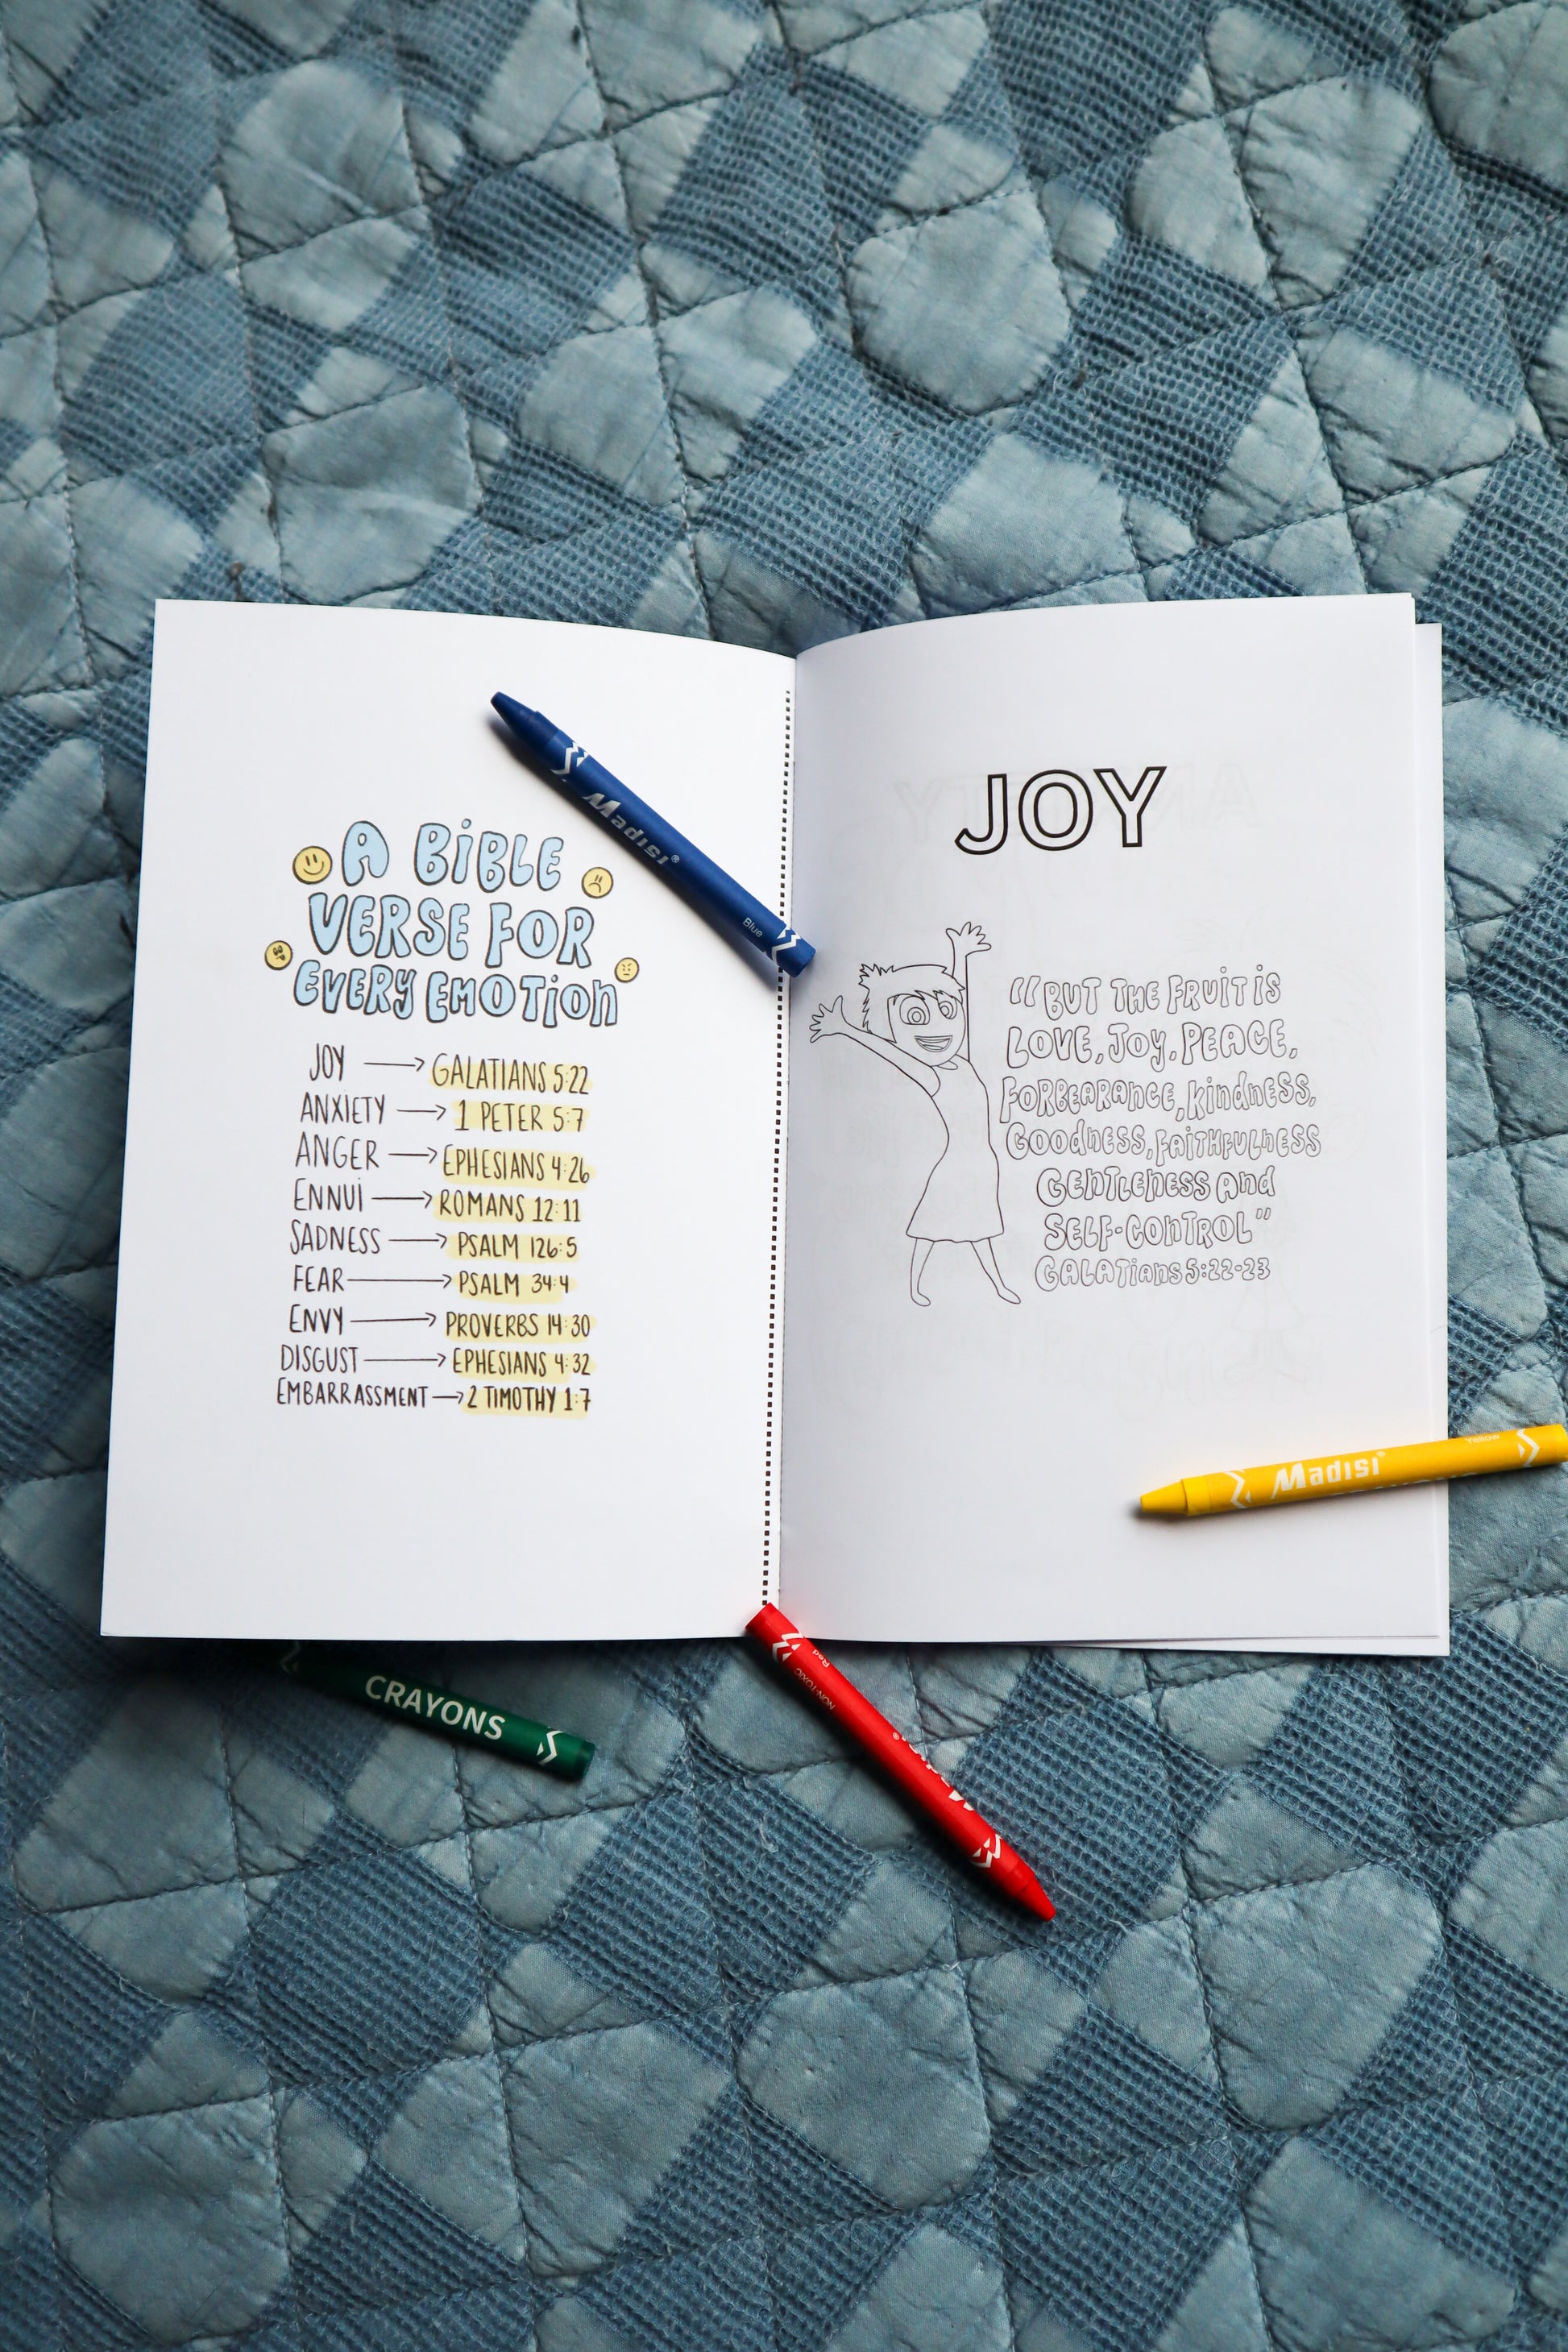 A BiBLE
VERSE FOR
EVERY EMOTion
JOY → GALATIANS 5:22
ANXIETY → 1 PETER 5:7
ANGER → EPHESIANS 4:26
ENNUi → ROMANS 12:11
SADNESS → PSALM 126:5
FEAR → PSALM 34:4
ENVY → PROVERBS 14:30
DISGUST → EPHESIANS 4:32
EMBARRASSMENT → 2 TIMOTHY 1:7
Madisi®
Blue
JOY
"BUT THE FRUiT iS
LOVE, JOY, PEACE,
FORBEARAnCE, KindnESS,
GOOdnESS, FAiTHFULnESS
GEnTLEnESS And
SELF-COnTROL"
GALATians 5:22-23
Madisi®
Yellow
CRAYONS
Red
NON-TOXIC